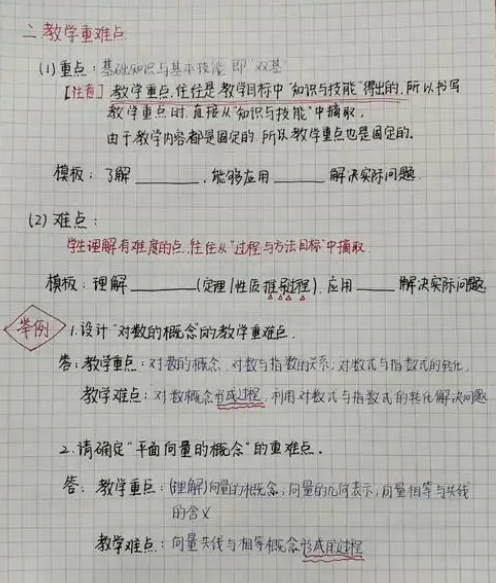 二、教学重难点
(1)重点：基础知识与基本技能 即"双基"
[注意]教学重点,往往是教学目标中"知识与技能"得出的,所以书写
教学重点时,直接从"知识与技能"中摘取,
由于教学内容都是固定的,所以教学重点也是固定的.
模板：了解______,能够应用______解决实际问题.
(2)难点：
学生理解有难度的点,往往从"过程与方法目标"中摘取
模板：理解______(定理/性质推导过程),应用____解决实际问题
举例 1.设计"对数的概念"的教学重难点.
答：教学重点：对数的概念、对数与指数的关系;对数式与指数式的转化.
教学难点：对数概念形成过程,利用对数式与指数式的转化解决问题
2.请确定"平面向量的概念"的重难点.
答：教学重点：(理解)向量的概念;向量的几何表示;向量相等与共线
的含义
教学难点：向量共线与相等概念形成的过程